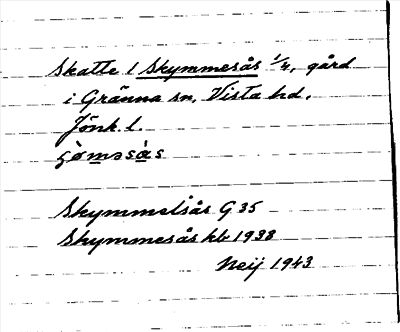 Skatte 1 Skymmesås 1/4, gård
i Gränna sn, Vista hd.
Jönk. l.
Skymmelsås G 35
Skymmesås kb 1938
Neij 1943